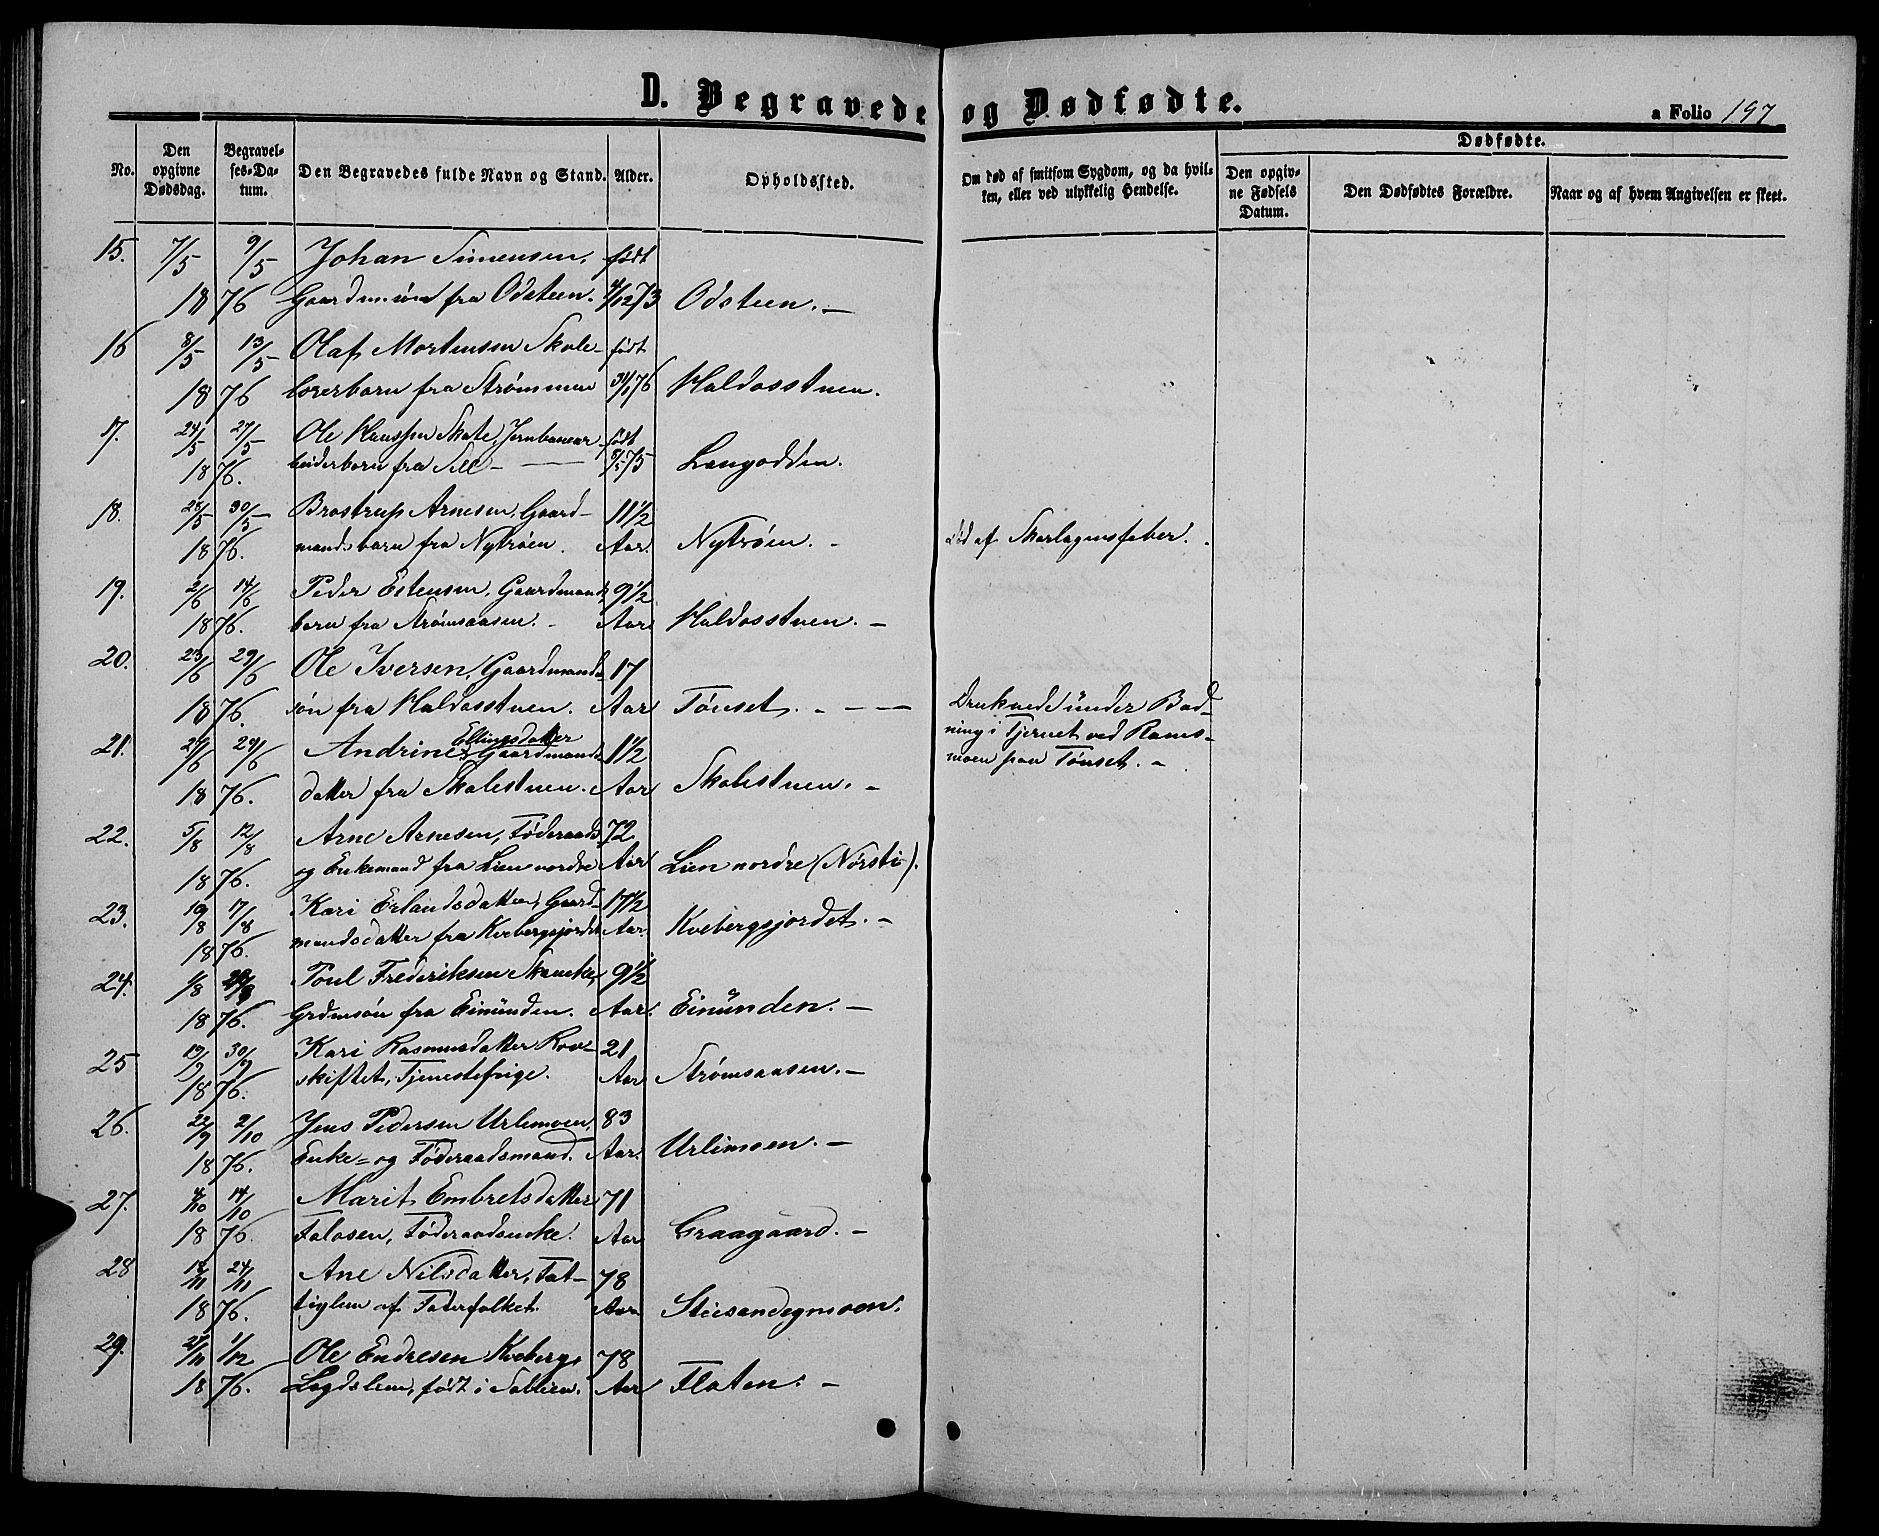 D. Begravede og Dødfødte.
a Folio 197
No.
Den opgivne Dødsdag.
Begravelses-Datum.
Den Begravedes fulde Navn og Stand.
Alder.
Opholdssted.
Om død af smitsom Sygdom, og da hvilken, eller ved ulykkelig Hendelse.
Dødfødte.
Den opgivne Fødsels Datum.
Den Dødfødtes Forældre.
Naar og af hvem Angivelsen er skeet.
15. 7/5 9/5 Johan Simensen, født
18 76 Gaardm.søn fra Odsteen. 4/12 73 Odsteen. -
16 8/5 13/5 Olaf Mortensen Skole- født
18 76 lærerbarn fra Strømmen 31/1 76 Haldosstuen.
17. 24/5 27/5 Ole Hansen Skate, Jernbanear- født
18 76. beiderbarn fra Sell - 8/5 75 Langodden.
18. 25/5 30/5 Brostrup Arnesen, Gaard- 11 1/2
18 76. mandsbarn fra Nytrøen. Aar. Nytrøen. - Død af Skarlagensfeber. -
19. 2/6 14/6 Peder Estensen, Gaardmands 9 1/2
18 76. barn fra Strømsaasen. - Aar Haldosstuen. -
20. 23/6 29/6 Ole Iversen, Gaardmands 17
18 76. søn fra Haldosstuen. Aar Tønset. - Druknede under Bad-
ning i Tjernet ved Rams-
moen paa Tønset. -
21. 27/6 29/6 Andrine Ellingsdatter Gaardmands 1 1/2
18 76. datter fra Skolestuen. Aar Skolestuen. -
22. 5/8 12/8 Arne Arnesen, Føderaads 72
18 76. og Enkemand fra Lien nordre Aar Lien nordre (Nørsti).
23. 10/8 17/8 Kari Erlandsdatter, Gaard- 17 1/2
18 76. mandsdatter fra Kvebergsjordet Aar. Kvebergsjordet. -
24. 1/8 Poul Frederiksen Skancke, 9 1/2
18 76. Grdmsøn fra Einunden. Aar. Einunden. -
25 19/9 30/9 Kari Rasmusdatter Rov- 21
18 76. skiftet, Tjenestepige. Aar Strømsaasen. -
26. 22/9 2/10 Jens Pedersen Urlimoen, 83
18 76. Enke- og Føderaadsmand. Aar. Urlimoen. -
27. 4/10 14/10 Marit Embretsdatter 71
18 76. Folosen, Føderaadsenke. Aar Graagaard. -
28 24/11 Ane Nilsdatter, Fat- 78
18 76. tiglem af Faterfolket. Aar Steesandegmoen.
29. 21/11 1/12 Ole Endresen Kveberg, 78
18 76. Lægdslem, født i Sollien. Aar Floten. -